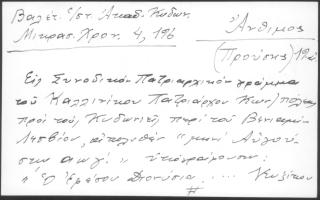 Βαλέτ. Ε/στ. Ἀκαδ. Κυδων.
Μικρασ. Χρον. 4, 196
Ἄνθιμος
(Προύσης)
Εἰς Συνοδικὸν Πατριαρχικὸν γράμμα
τοῦ Καλλινίκου Πατριάρχου Κων/πόλεως
πρὸς τοὺς Κυδωνιεῖς περὶ τοῦ Βενιαμὶν
Λεσβίου, ἀπολυθὲν "μηνὶ Αὐγού-
στῳ αωγʹ" ὑπογράφουσιν:
"Ὁ Ἐφέσου Διονύσιος ....